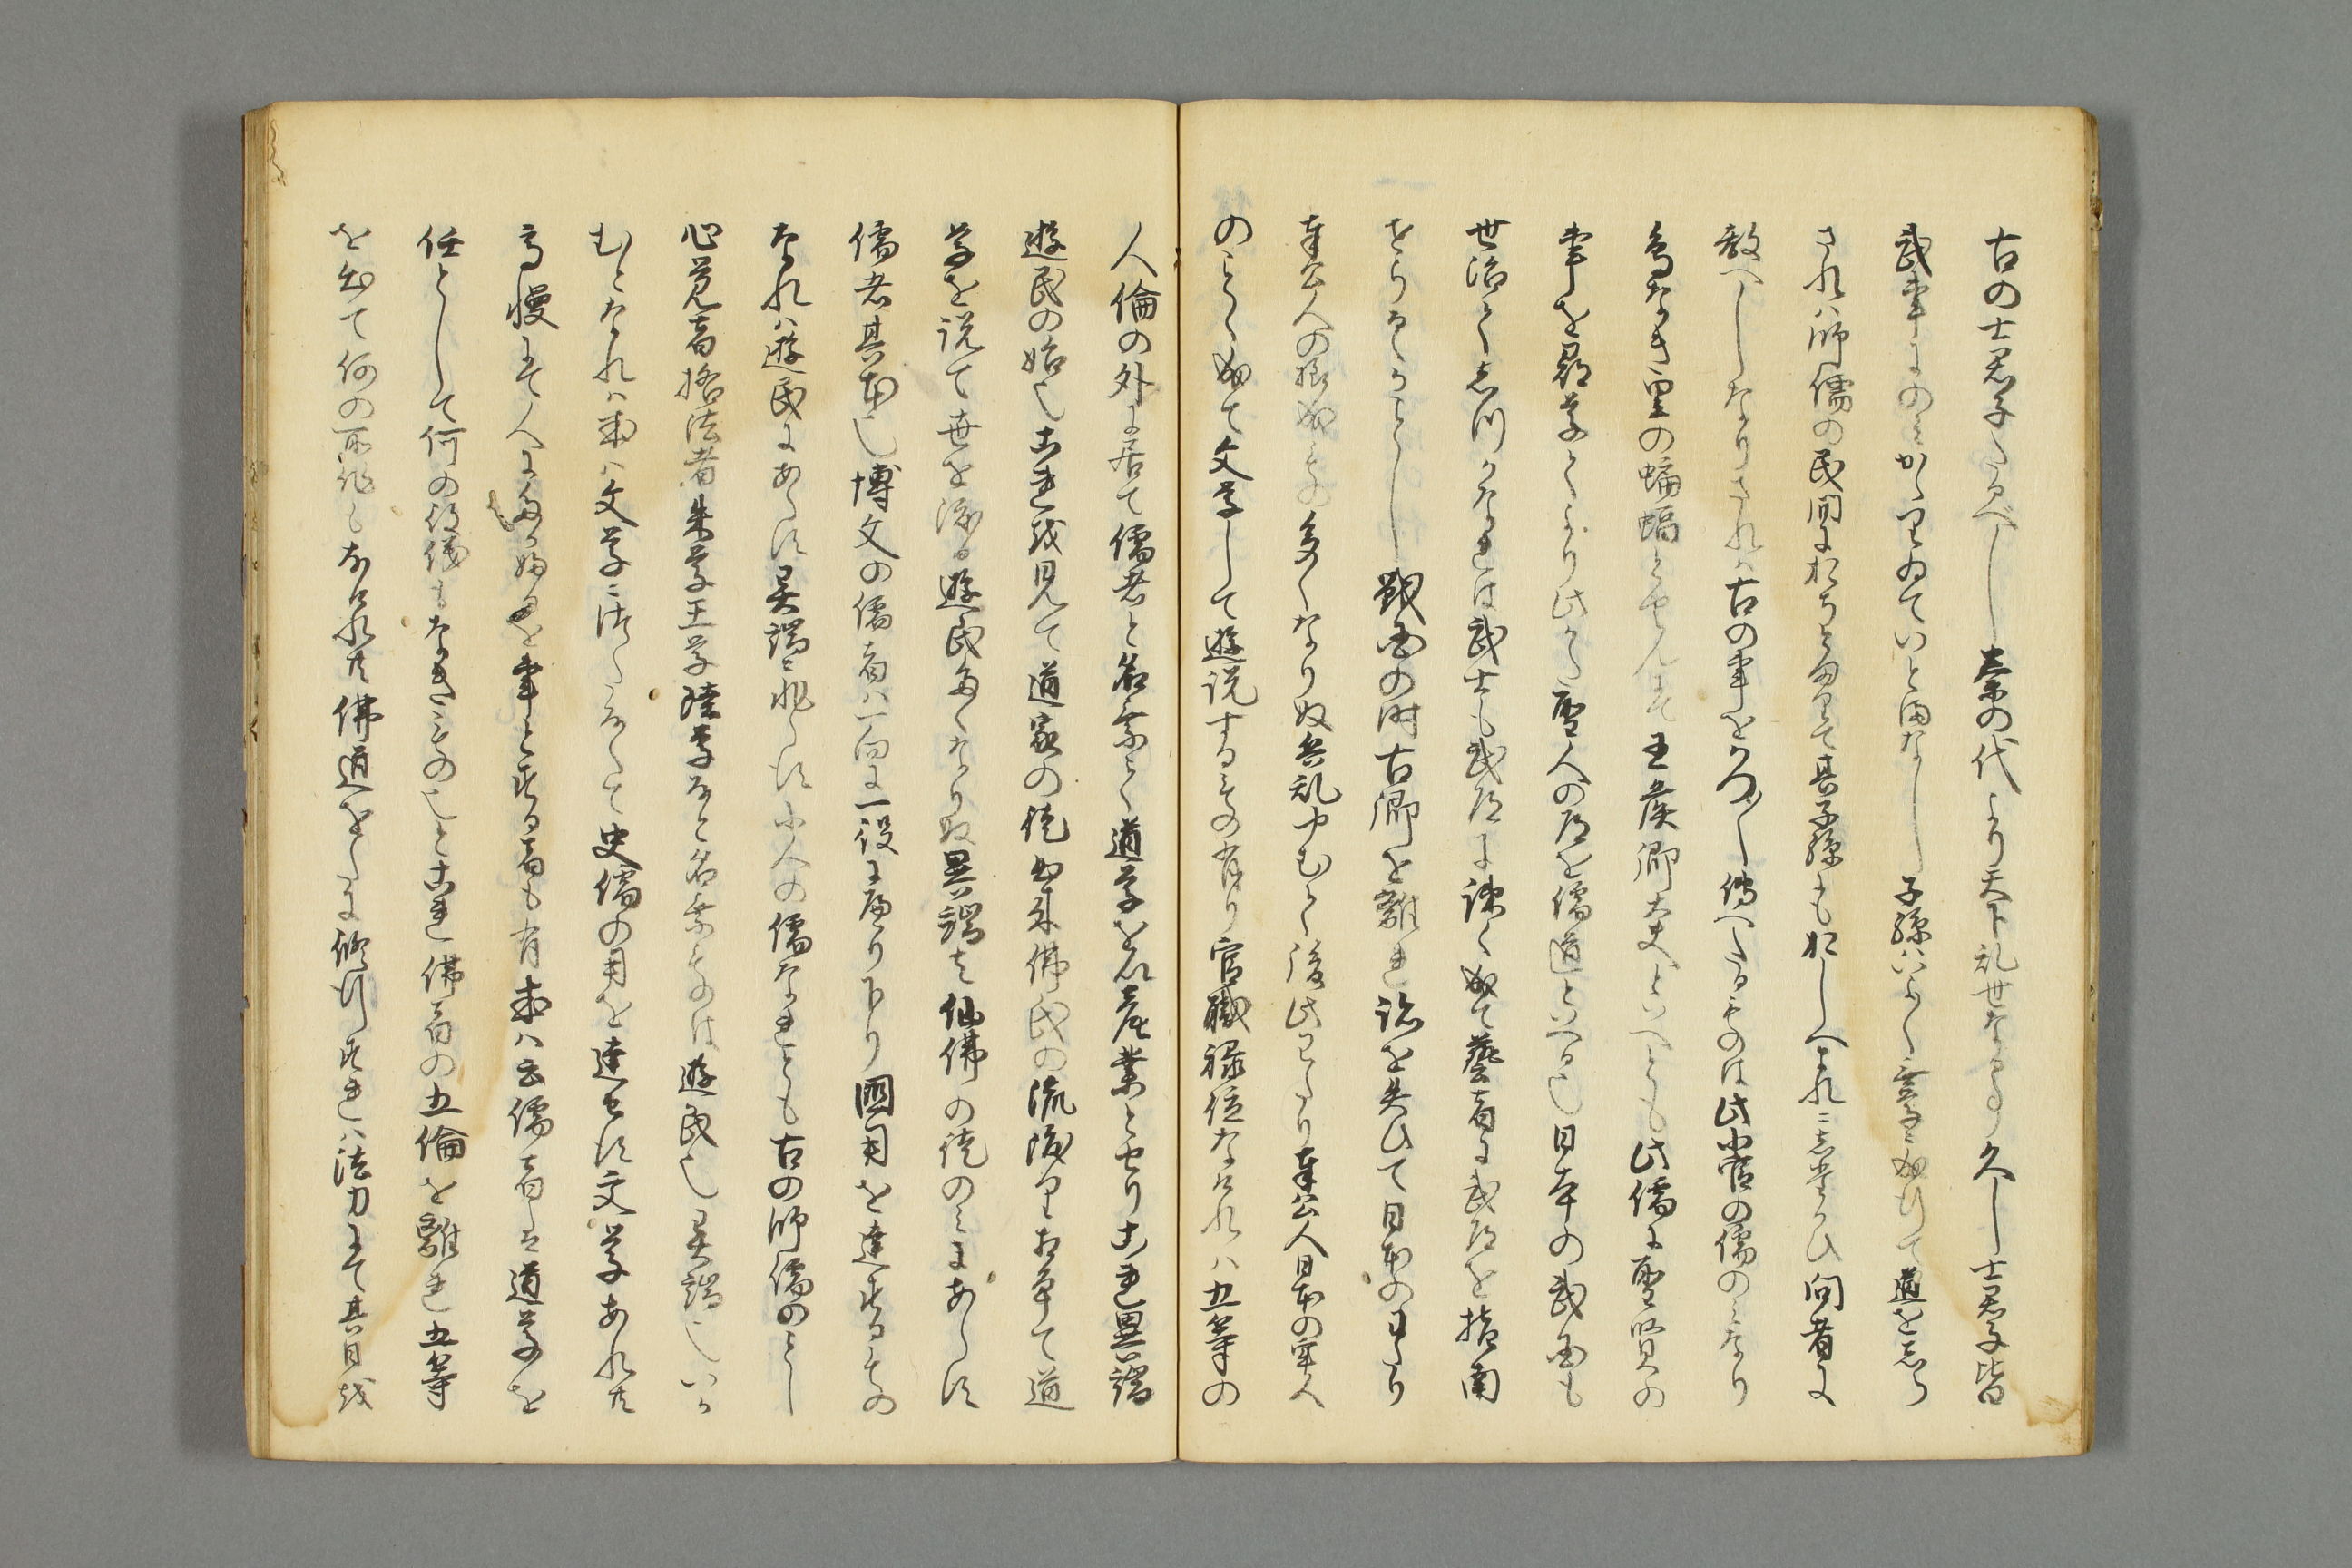 古の士君子たるべし秦の代より天下乱世なる事久し士君子皆
武事にのみかゝりゐていとまなし子孫いよ〱無学に成行て道をしら
されハ師儒の民間におちとまりて其子孫ともおしへられ
教へしなりされハ古の事をかつ〱傳へたるものは此小官の儒のみなり
鳥なき里の蝙蝠とやらんにて王侯卿大夫といへとも此儒に聖賢の
事を尋学ふより此かた聖人の道を儒道といへる也日本の武国も
世治て志川かなれは武士も武道に疎く成て藝者に武道を指南
せらるゝかことし戦国の時古郷を離れ禄を失ひて日本のわたり
奉公人の様成もの多くなりぬ兵乱やむて後此わたり奉公人日本の牢人
のことく成て文学して遊説するもの有り官職禄位なけれハ五等の
人倫の外に居て儒者と名乗て道学を以産業とせりこれ異端
遊民の始也これを見て道家の徒出来佛氏の流渡りおりて道
学を説て世を渡る遊民多くなりぬ異端は仙佛の徒のみにあらす
儒者其本也博文の儒者ハ一向に一役に下り國用を達するもの
なれハ遊民にあらす異端に非らす小人の儒なれとも古の師儒のことし
心覚者格法者朱学王学陸学なと名乗ものは遊民也異端也いか
むとなれハ彼ハ文学に済たらなくて史儒の用を達せす文学あれ共
高慢にて人に事とする者も有或ハ云儒者は道学を
任として何の役儀もなきもの也とこれ佛者の五倫を離れ五等
を出て何の所作もなけれ共佛道をたに修行すれハ法力にて其日を